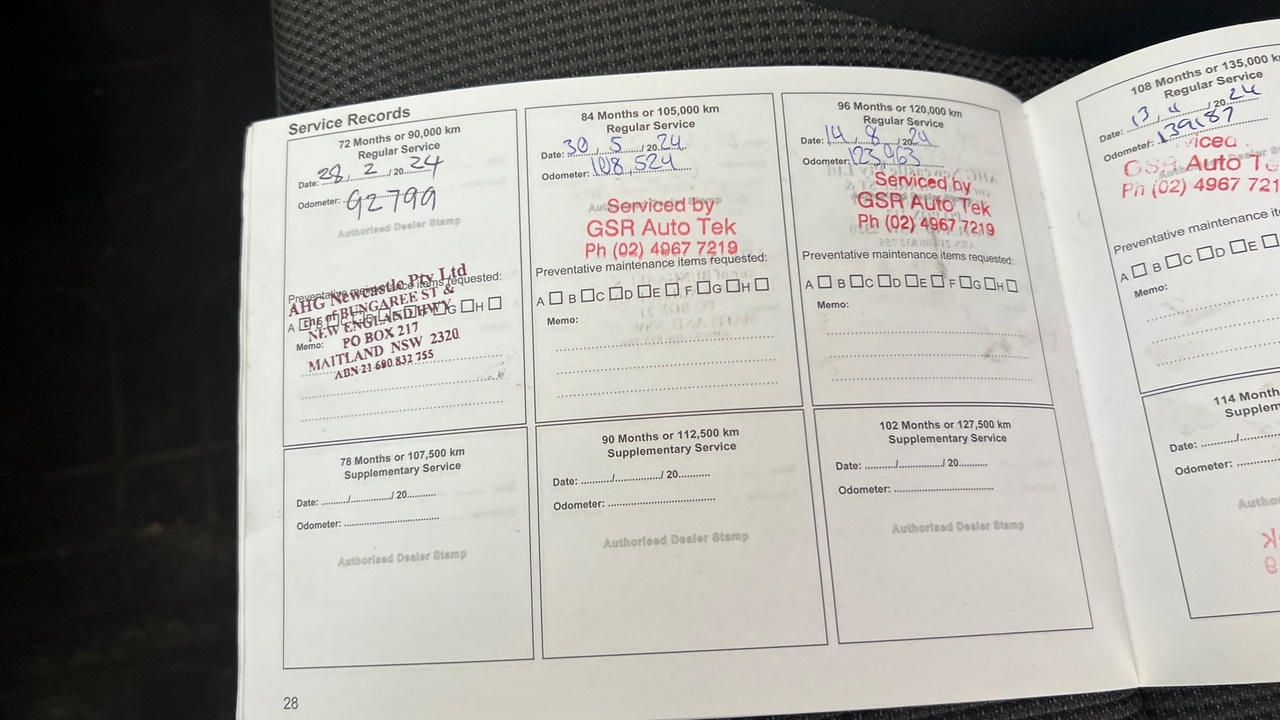 Service Records
72 Months or 90,000 km
Regular Service
Date: 28 / 2 / 20 24
Odometer: 92799
Authorised Dealer Stamp
Preventative maintenance items requested:
AHG Newcastle Pty Ltd
cnr of BUNGAREE ST &
NEW ENGLAND HWY
PO BOX 217
MAITLAND NSW 2320
ABN 21 680 832 755
A G H
Memo:
84 Months or 105,000 km
Regular Service
Date: 30 / 5 / 20 24
Odometer: 108,524
Serviced by
GSR Auto Tek
Ph (02) 4967 7219
Preventative maintenance items requested:
A B C D E F G H
Memo:
96 Months or 120,000 km
Regular Service
Date: 14 / 8 / 20 24
Odometer: 123,963
Serviced by
GSR Auto Tek
Ph (02) 4967 7219
Preventative maintenance items requested:
A B C D E F G H
Memo:
108 Months or 135,000 k
Regular Service
Date: 13 / / 20 24
Odometer: 139187
viced
GSR Auto T
Ph (02) 4967 721
Preventative maintenance it
A B C D E
Memo:
78 Months or 107,500 km
Supplementary Service
Date: ........./............../ 20..........
Odometer: .........................
Authorised Dealer Stamp
90 Months or 112,500 km
Supplementary Service
Date: ........./............../ 20..........
Odometer: .........................
Authorised Dealer Stamp
102 Months or 127,500 km
Supplementary Service
Date: ........./............../ 20..........
Odometer: .........................
Authorised Dealer Stamp
114 Month
Supplem
Date: ........../
Odometer: ............
Autho
28